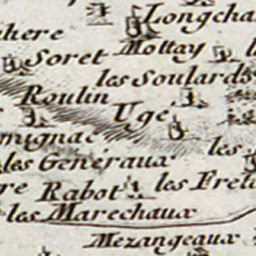 Longcha
Mottay
Soret
les Soulards
Roulin
Ugé
mignac
les Generaux
les
Rabot
les Frel
les Marechaux
Mezangeaux